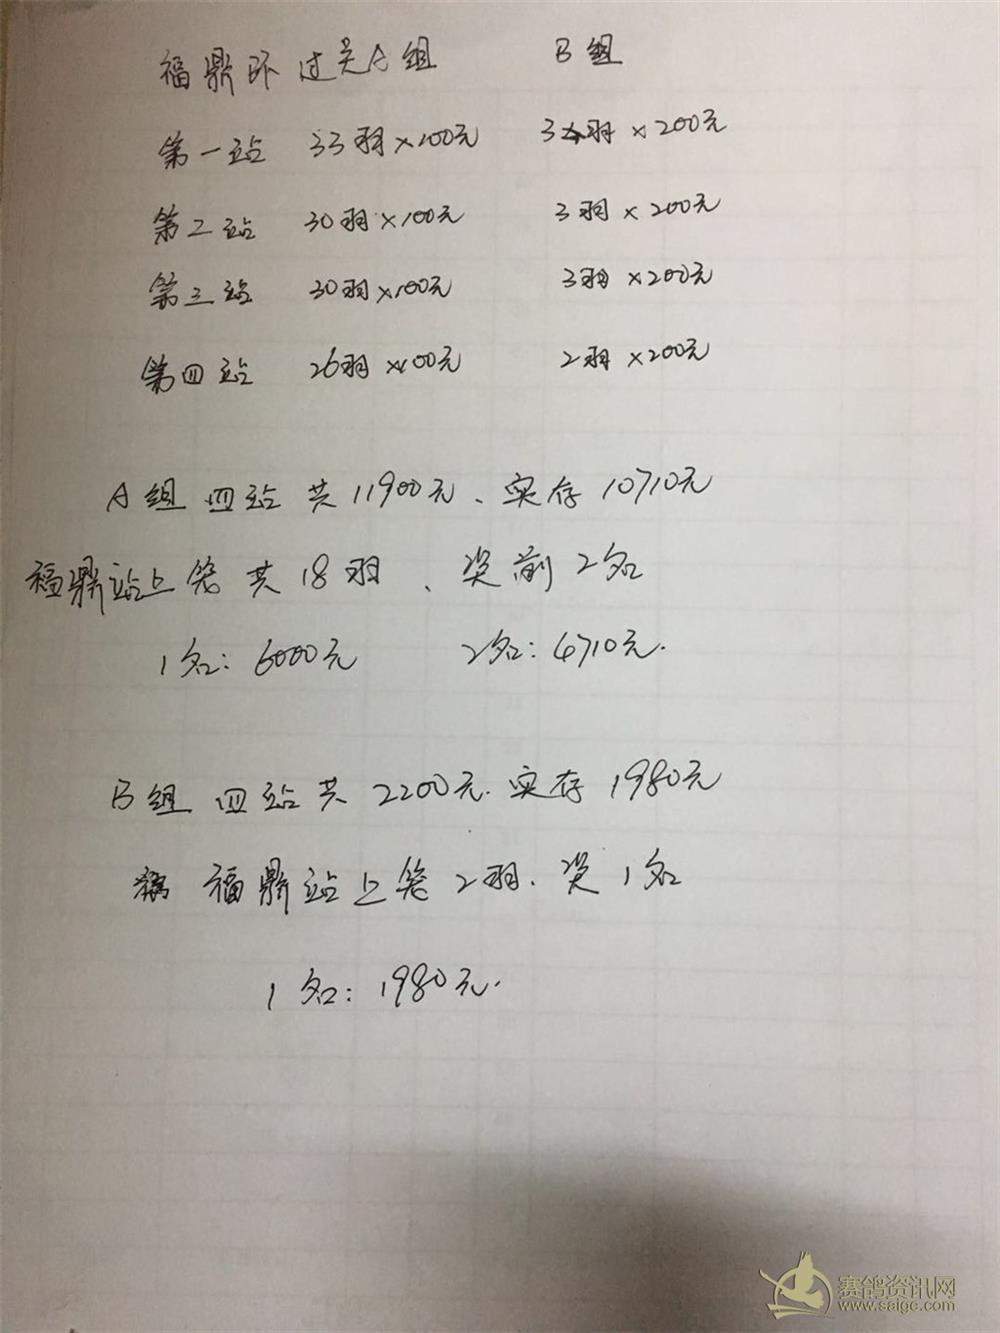 福鼎环过关A组 B组
第一站 33羽×100元 3羽×200元
第二站 30羽×100元 3羽×200元
第三站 30羽×100元 3羽×200元
第四站 26羽×100元 2羽×200元
A组四站共11900元、实存10710元
福鼎站上笼共18羽、奖前2名
1名：6000元 2名：4710元.
B组四站共2200元.实存1980元
福鼎站上笼2羽.奖1名
1名：1980元.
赛鸽资讯网
www.saigc.com